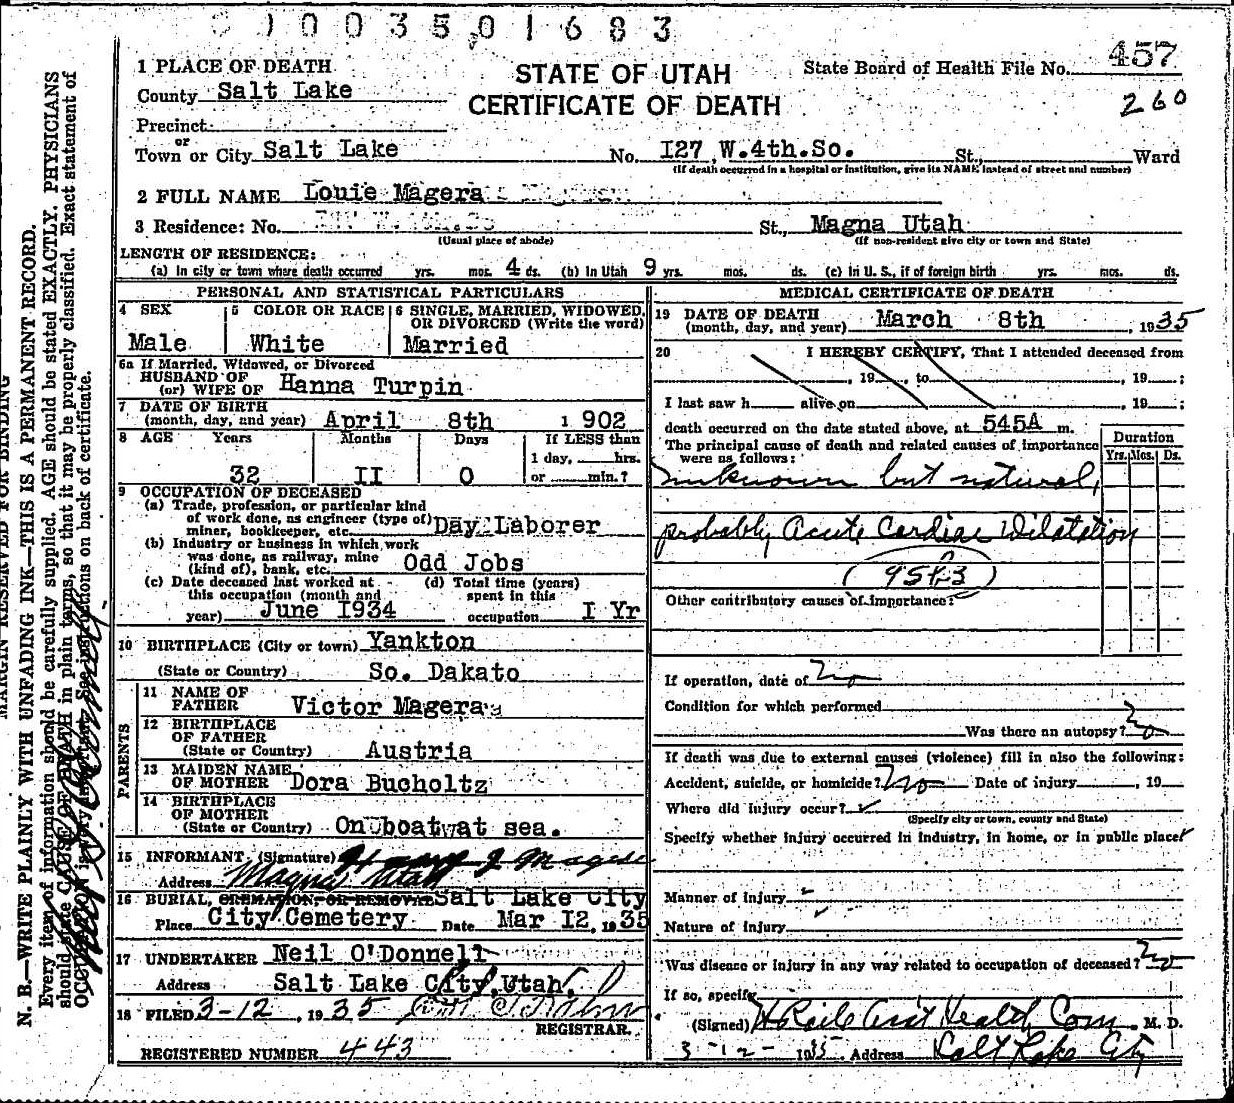 1003501683
457
260
STATE OF UTAH
CERTIFICATE OF DEATH
State Board of Health File No.
1 PLACE OF DEATH
County Salt Lake
Precinct
or
Town or City Salt Lake No. I27 W.4th.So. St., Ward
(If death occurred in a hospital or institution, give its NAME instead of street and number)
2 FULL NAME Louie Magera
3 Residence: No. St., Magna Utah
(Usual place of abode) (If non-resident give city or town and State)
LENGTH OF RESIDENCE:
(a) In city or town where death occurred yrs. mos. 4 ds. (b) In Utah 9 yrs. mos. ds. (c) In U. S., if of foreign birth yrs. mos. ds.
PERSONAL AND STATISTICAL PARTICULARS
4 SEX
Male
5 COLOR OR RACE
White
6 SINGLE, MARRIED, WIDOWED, OR DIVORCED (Write the word)
Married
6a If Married, Widowed, or Divorced
HUSBAND OF
(or) WIFE OF Hanna Turpin
7 DATE OF BIRTH
(month, day, and year) April 8th 1902
8 AGE Years Months Days If LESS than
1 day, hrs.
32 II 0 or min.?
9 OCCUPATION OF DECEASED
(a) Trade, profession, or particular kind
of work done, as engineer (type of)
miner, bookkeeper, etc. Day Laborer
(b) Industry or business in which work
was done, as railway, mine
(kind of), bank, etc. Odd Jobs
(c) Date deceased last worked at
this occupation (month and
year) June I934
(d) Total time (years)
spent in this
occupation I Yr
10 BIRTHPLACE (City or town) Yankton
(State or Country) So. Dakato
PARENTS
11 NAME OF
FATHER Victor Magera
12 BIRTHPLACE
OF FATHER
(State or Country) Austria
13 MAIDEN NAME
OF MOTHER Dora Bucholtz
14 BIRTHPLACE
OF MOTHER
(State or Country) On boat at sea.
15 INFORMANT (Signature)
Address Magna Utah
16 BURIAL, CREMATION, OR REMOVAL Salt Lake City
Place City Cemetery Date Mar I2, 1935
17 UNDERTAKER Neil O'Donnell
Address Salt Lake City, Utah.
18 FILED 3-12, 1935
REGISTRAR.
REGISTERED NUMBER 443
MEDICAL CERTIFICATE OF DEATH
19 DATE OF DEATH
(month, day, and year) March 8th, 1935
20 I HEREBY CERTIFY, That I attended deceased from
, 19 , to , 19 ;
I last saw h alive on , 19 ;
death occurred on the date stated above, at 545A m.
The principal cause of death and related causes of importance
were as follows:
Duration
Yrs. Mos. Ds.
unknown but natural,
probably Acute Cardiac Dilatation
Other contributory causes of importance:
If operation, date of No
Condition for which performed
Was there an autopsy? No
If death was due to external causes (violence) fill in also the following:
Accident, suicide, or homicide? No Date of injury , 19
Where did injury occur?
(Specify city or town, county and State)
Specify whether injury occurred in industry, in home, or in public place
Manner of injury
Nature of injury
Was disease or injury in any way related to occupation of deceased? No
If so, specify
(Signed) Ass't Health Com. M. D.
3-12-1935. Address Salt Lake City
MARGIN RESERVED FOR BINDING
N. B.—WRITE PLAINLY WITH UNFADING INK—THIS IS A PERMANENT RECORD.
Every item of information should be carefully supplied. AGE should be stated EXACTLY. PHYSICIANS
should state CAUSE OF DEATH in plain terms, so that it may be properly classified. Exact statement of
OCCUPATION is very important. See instructions on back of certificate.